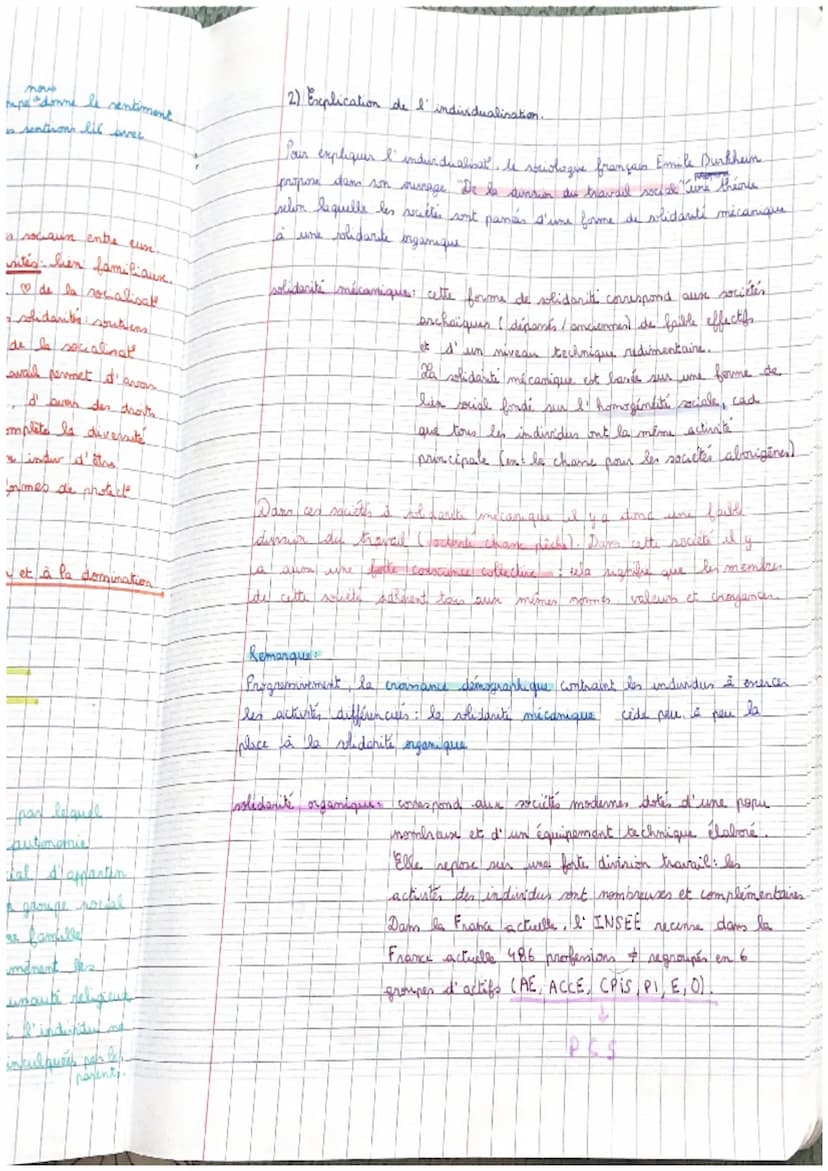 nous
donne le sentiment
sentirons lié avec
sociaux entre eux.
liens familiaux.
♡ de la socialisat°
solidarités: soutiens
de la socialisat°
permet d'avoir
d'avoir des droits
complète la diversité
indiv d'être
formes de protect°
et à la domination
par lequel
autonomie
d'apparten
groupe social
famille
mènent les
religieux
l'individu ne
inculquées par les
parents.
2) Explication de l'individualisation.
Pour expliquer l'individualisat°, le sociologue français Emile Durkheim
propose dans son ouvrage "De la division du travail social" une théorie
selon laquelle les sociétés sont passées d'une forme de solidarité mécanique
à une solidarité organique
solidarité mécanique: cette forme de solidarité correspond aux sociétés
archaïques (dépassés / anciennes) de faible effectifs
et d'un niveau technique rudimentaire.
La solidarité mécanique est basée sur une forme de
lien social fondé sur l'homogénéité sociale, cad
que tous les individus ont la même activité
principale (ex: la chasse pour les sociétés aborigènes)
Dans ces sociétés à solidarité mécanique il y a donc une faible
division du travail (activité chasse pêche). Dans cette société il y
a aussi une forte conscience collective : cela signifie que les membres
de cette société adhèrent tous aux mêmes normes, valeurs et croyances.
Remarque:
Progressivement, la croissance démographique contraint les individus à exercer
les activités différenciés: la solidarité mécanique cède peu à peu la
place à la solidarité organique
solidarité organique: correspond aux sociétés modernes dotés d'une popu
nombreuse et d'un équipement technique élaboré.
Elle repose sur une forte division travail: les
activités des individus sont nombreuses et complémentaires
Dans la France actuelle, l'INSEE recense dans la
France actuelle 486 professions ≠ regroupés en 6
groupes d'actifs (AE, ACCE, CPIS, PI, E, O).
↓
PCS